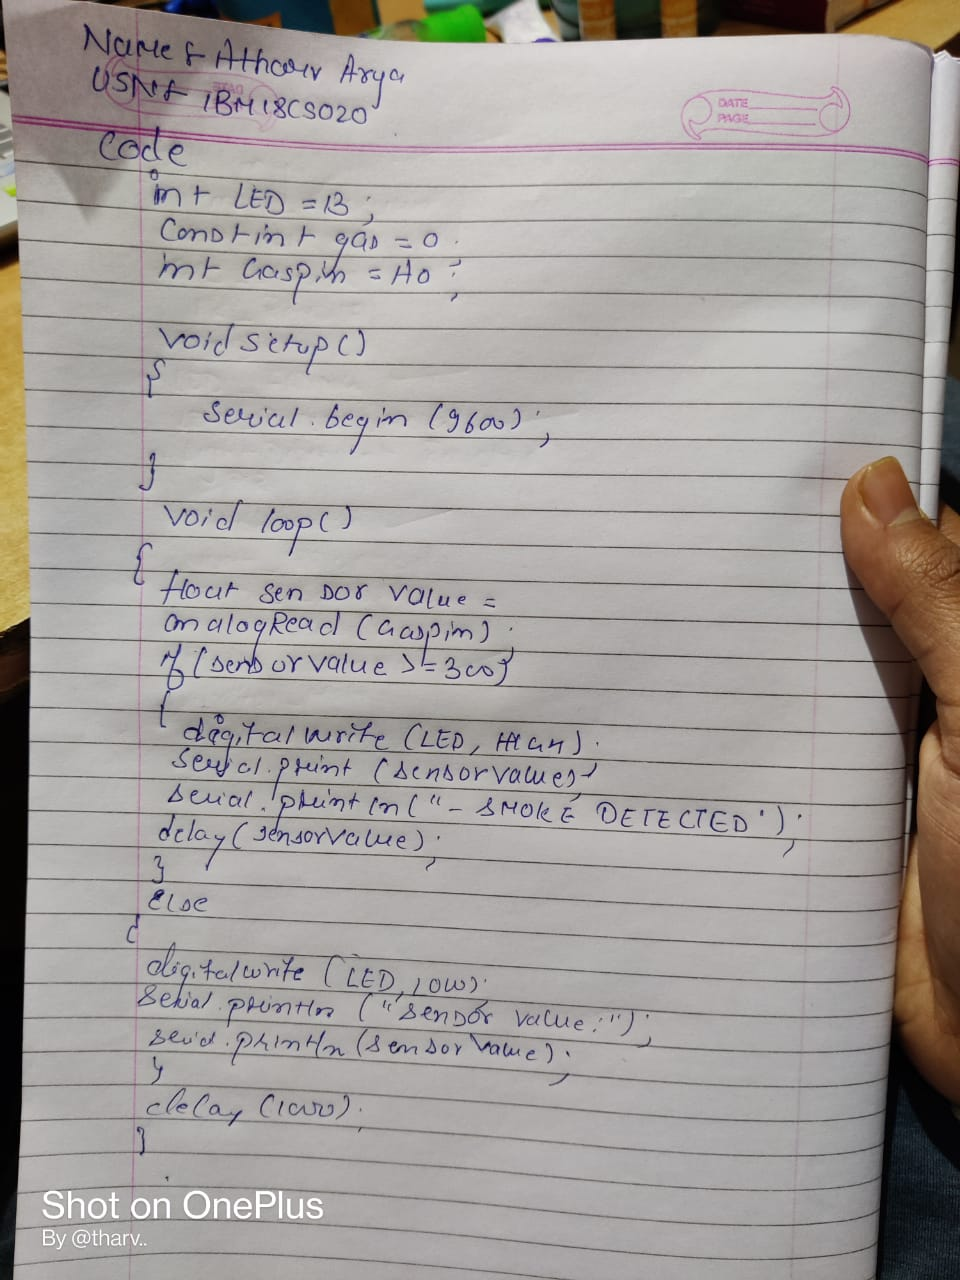 Name : Atharv Arya
USN : 1BM18CS020
DATE
PAGE
Code
int LED = 13;
Const int gas = 0;
int Gaspin = A0;
void setup()
{
serial.begin (9600);
}
void loop()
{
float sensor value =
analogRead (Gaspin);
if (sensorvalue >= 300)
{
digitalwrite (LED, HIGH);
Serial.print (sensorvalue);
serial.println ("- SMOKE DETECTED");
delay (sensorvalue);
}
else
{
digitalwrite (LED, LOW);
Serial.println ("sensor value:");
serial.println (sensorvalue);
}
delay (1000);
}
Shot on OnePlus
By @tharv..